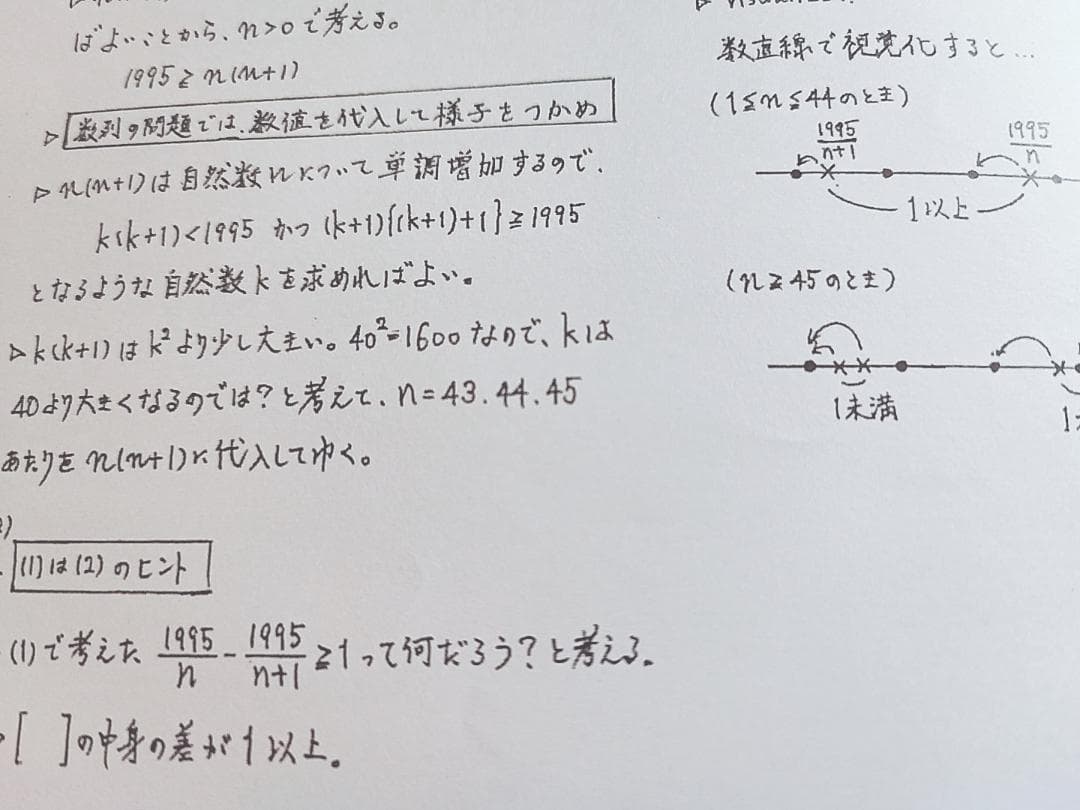 ばよいことから、n>0で考える。
1995≧n(n+1)
▷数列の問題では、数値を代入して様子をつかめ
▷n(n+1)は自然数nについて単調増加するので、
k(k+1)<1995 かつ (k+1){(k+1)+1}≧1995
となるような自然数kを求めればよい。
▷k(k+1)はk²より少し大きい。40²=1600なので、kは
40より大きくなるのでは?と考えて、n=43.44.45
あたりをn(n+1)に代入してゆく。
(1)は(2)のヒント
(1)で考えた 1995/n - 1995/n+1 ≧1って何だろう?と考える。
[ ]の中身の差が1以上。
数直線で視覚化すると…
(1≦n≦44のとき)
1995/n+1 1995/n
1以上
(n≧45のとき)
1未満